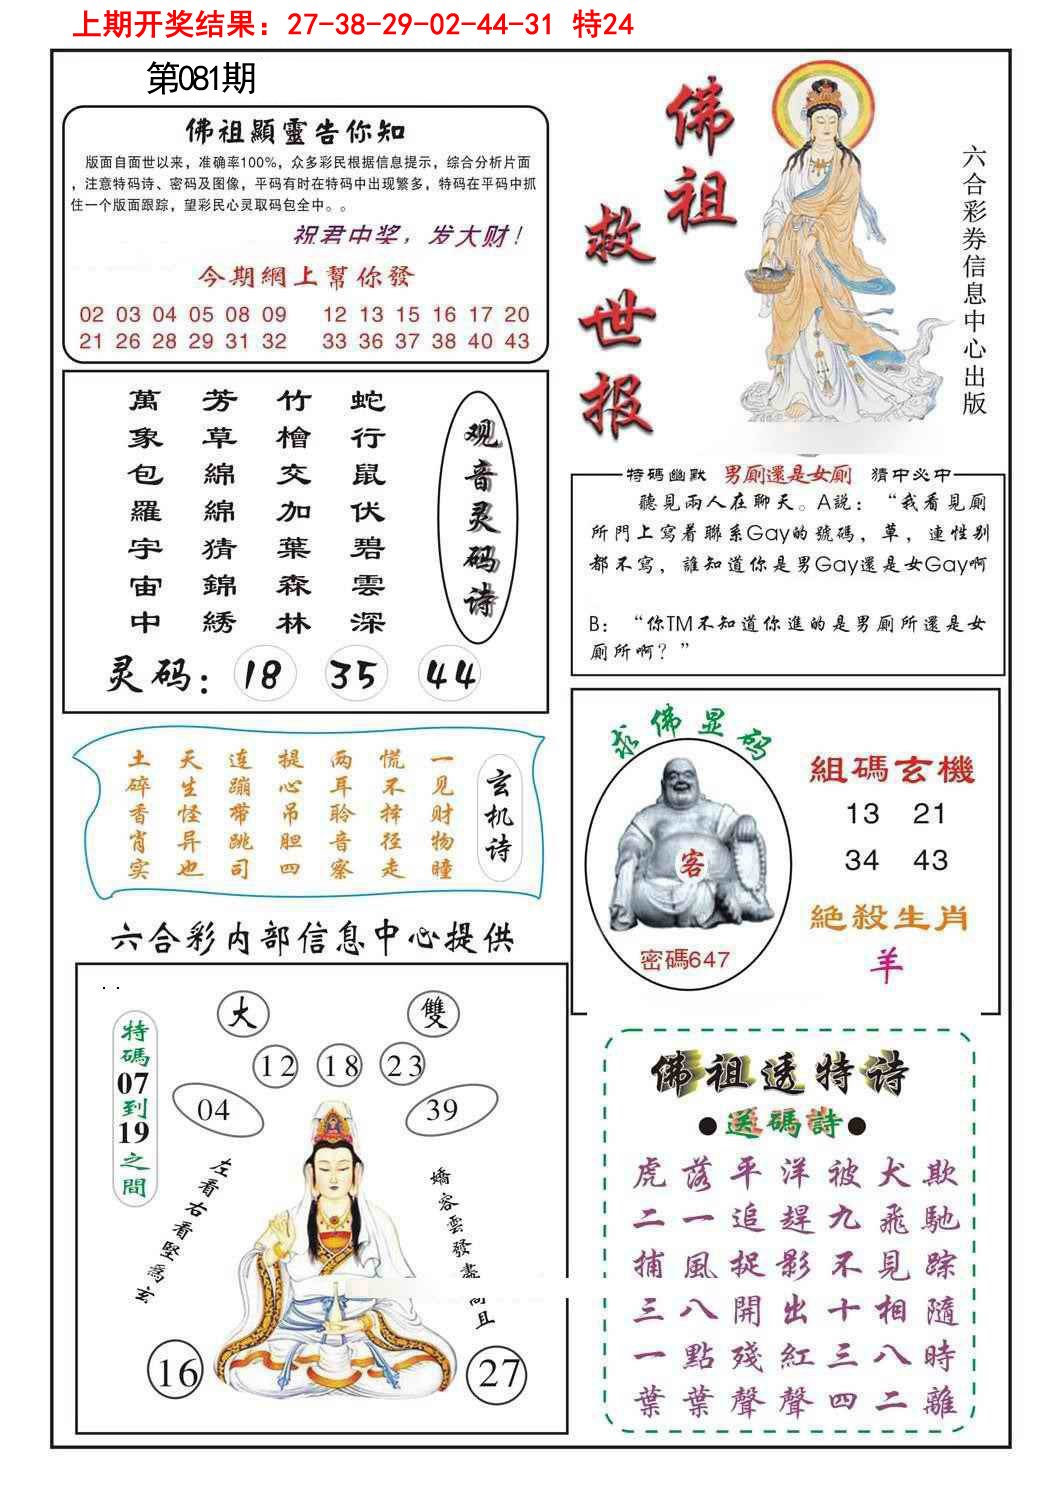 上期开奖结果：27-38-29-02-44-31 特24
第081期
佛祖顯靈告你知
版面自面世以来，准确率100%，众多彩民根据信息提示，综合分析片面
，注意特码诗、密码及图像，平码有时在特码中出现繁多，特码在平码中抓
住一个版面跟踪，望彩民心灵取码包全中。。
祝君中奖，发大财！
今期網上幫你發
02 03 04 05 08 09 12 13 15 16 17 20
21 26 28 29 31 32 33 36 37 38 40 43
佛祖
救世报
六合彩券信息中心出版
观音灵码诗
蛇行鼠伏碧雲深
竹檜交加葉森林
芳草綿綿猜錦綉
萬象包羅宇宙中
灵码：18 35 44
特碼幽默 男厠還是女厠 猜中必中
聽見兩人在聊天。A説：“我看見厠
所門上寫着聯系Gay的號碼，草，連性别
都不寫，誰知道你是男Gay還是女Gay啊
B：“你TM不知道你進的是男厠所還是女
厠所啊？”
玄机诗
一见财物瞳
慌不择径走
两耳聆音察
提心吊胆四
连蹦带跳司
天生怪异也
土碎香肖实
求佛显码
客
密碼647
組碼玄機
13 21
34 43
絶殺生肖
羊
六合彩内部信息中心提供
特碼07到19之間
大 雙
12 18 23
04 39
左看右看堅爲玄
嬌容雲發盡 且
16 27
佛祖透特诗
●送碼詩●
虎落平洋被犬欺
二一追趕九飛馳
捕風捉影不見踪
三八開出十相隨
一點殘紅三八時
葉葉聲聲四二離